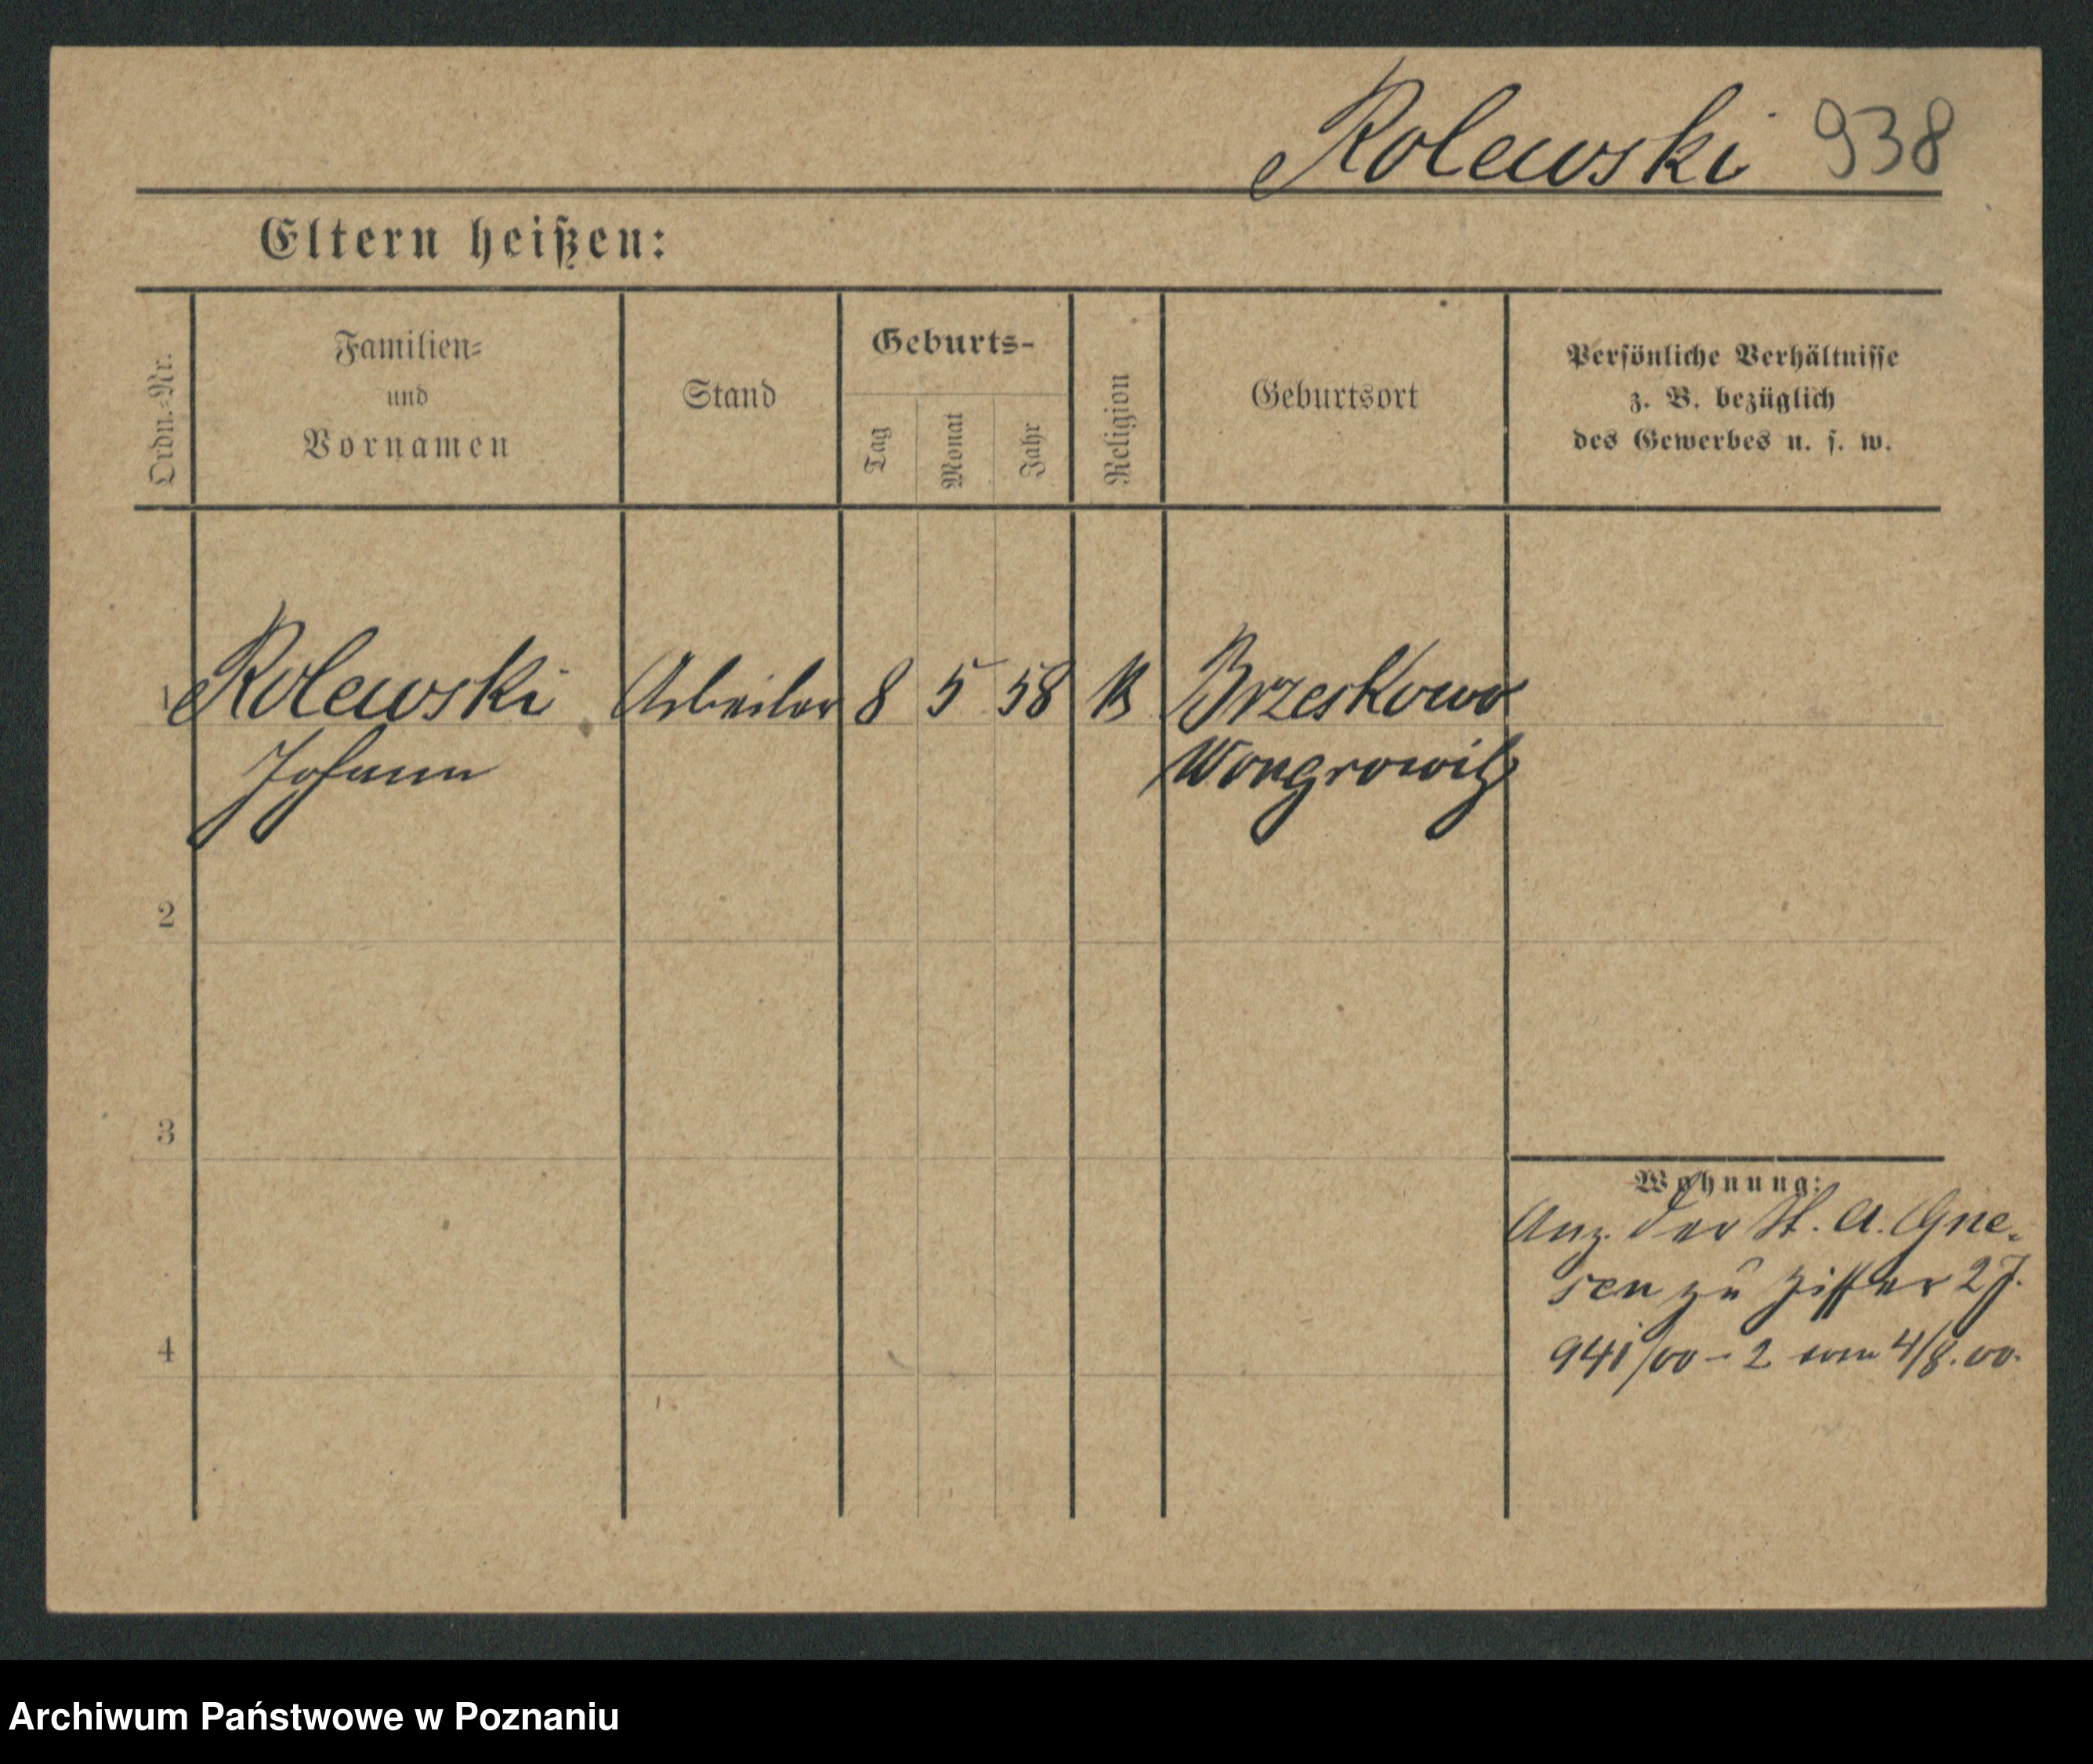 Rolewski 938
Eltern heißen:
Ordn.-Nr.
Familien-
und
Vornamen
Stand
Geburts-
Tag
Monat
Jahr
Religion
Geburtsort
Persönliche Verhältnisse
z. B. bezüglich
des Gewerbes u. s. w.
1 Rolewski Arbeiter 8 5 58 Brzeskowo
Johann Wongrowitz
2
3
Wohnung:
Anz. der St. A. Gne-
sen zu Ziffer 2 J.
4
941/00 - 2 vom 4/8. 00.
Archiwum Państwowe w Poznaniu